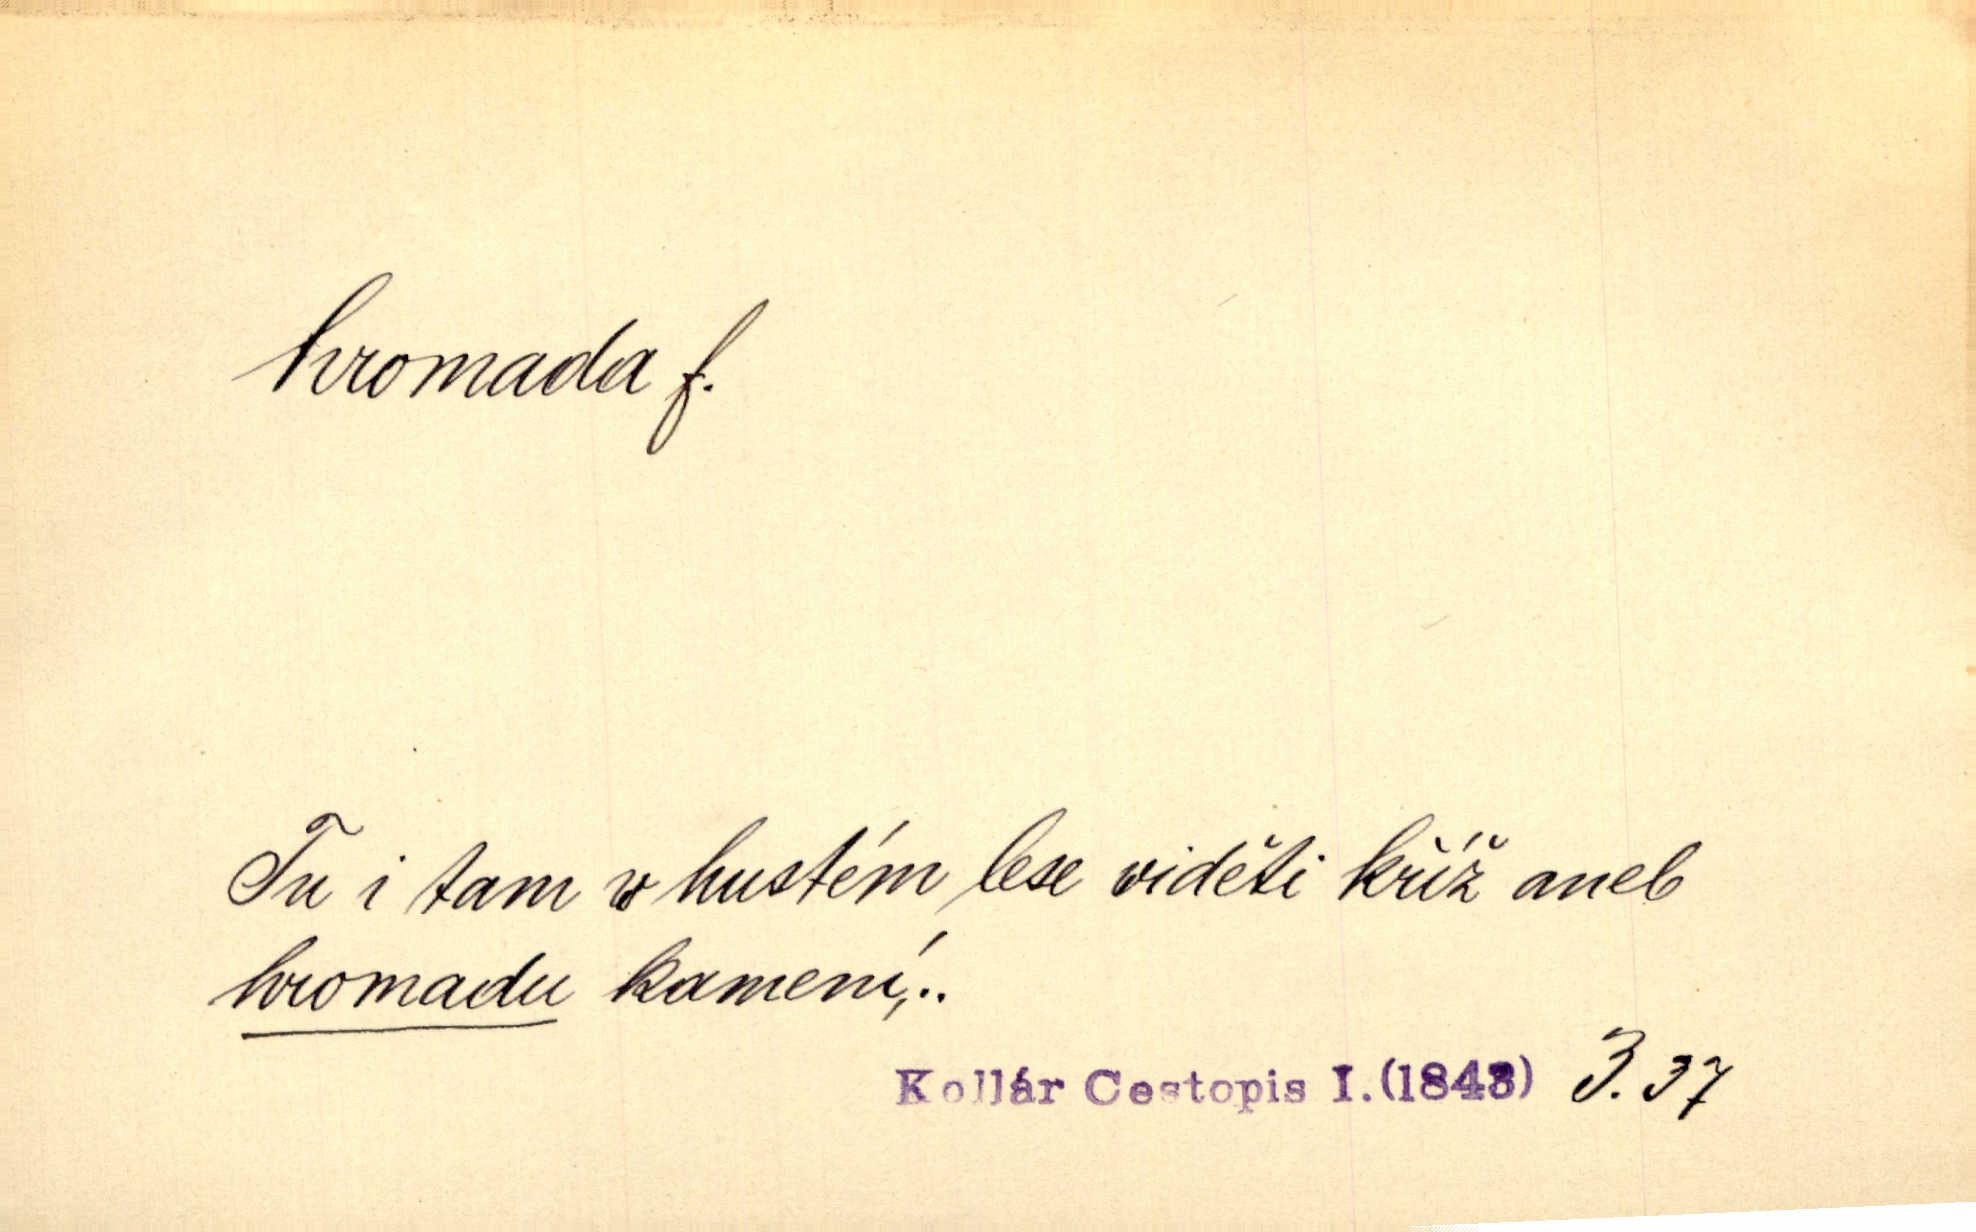 hromada f.
Tu i tam w hustém lese viděti kříž aneb
hromadu kamení,..
Kollár Cestopis I.(1843) 3.37